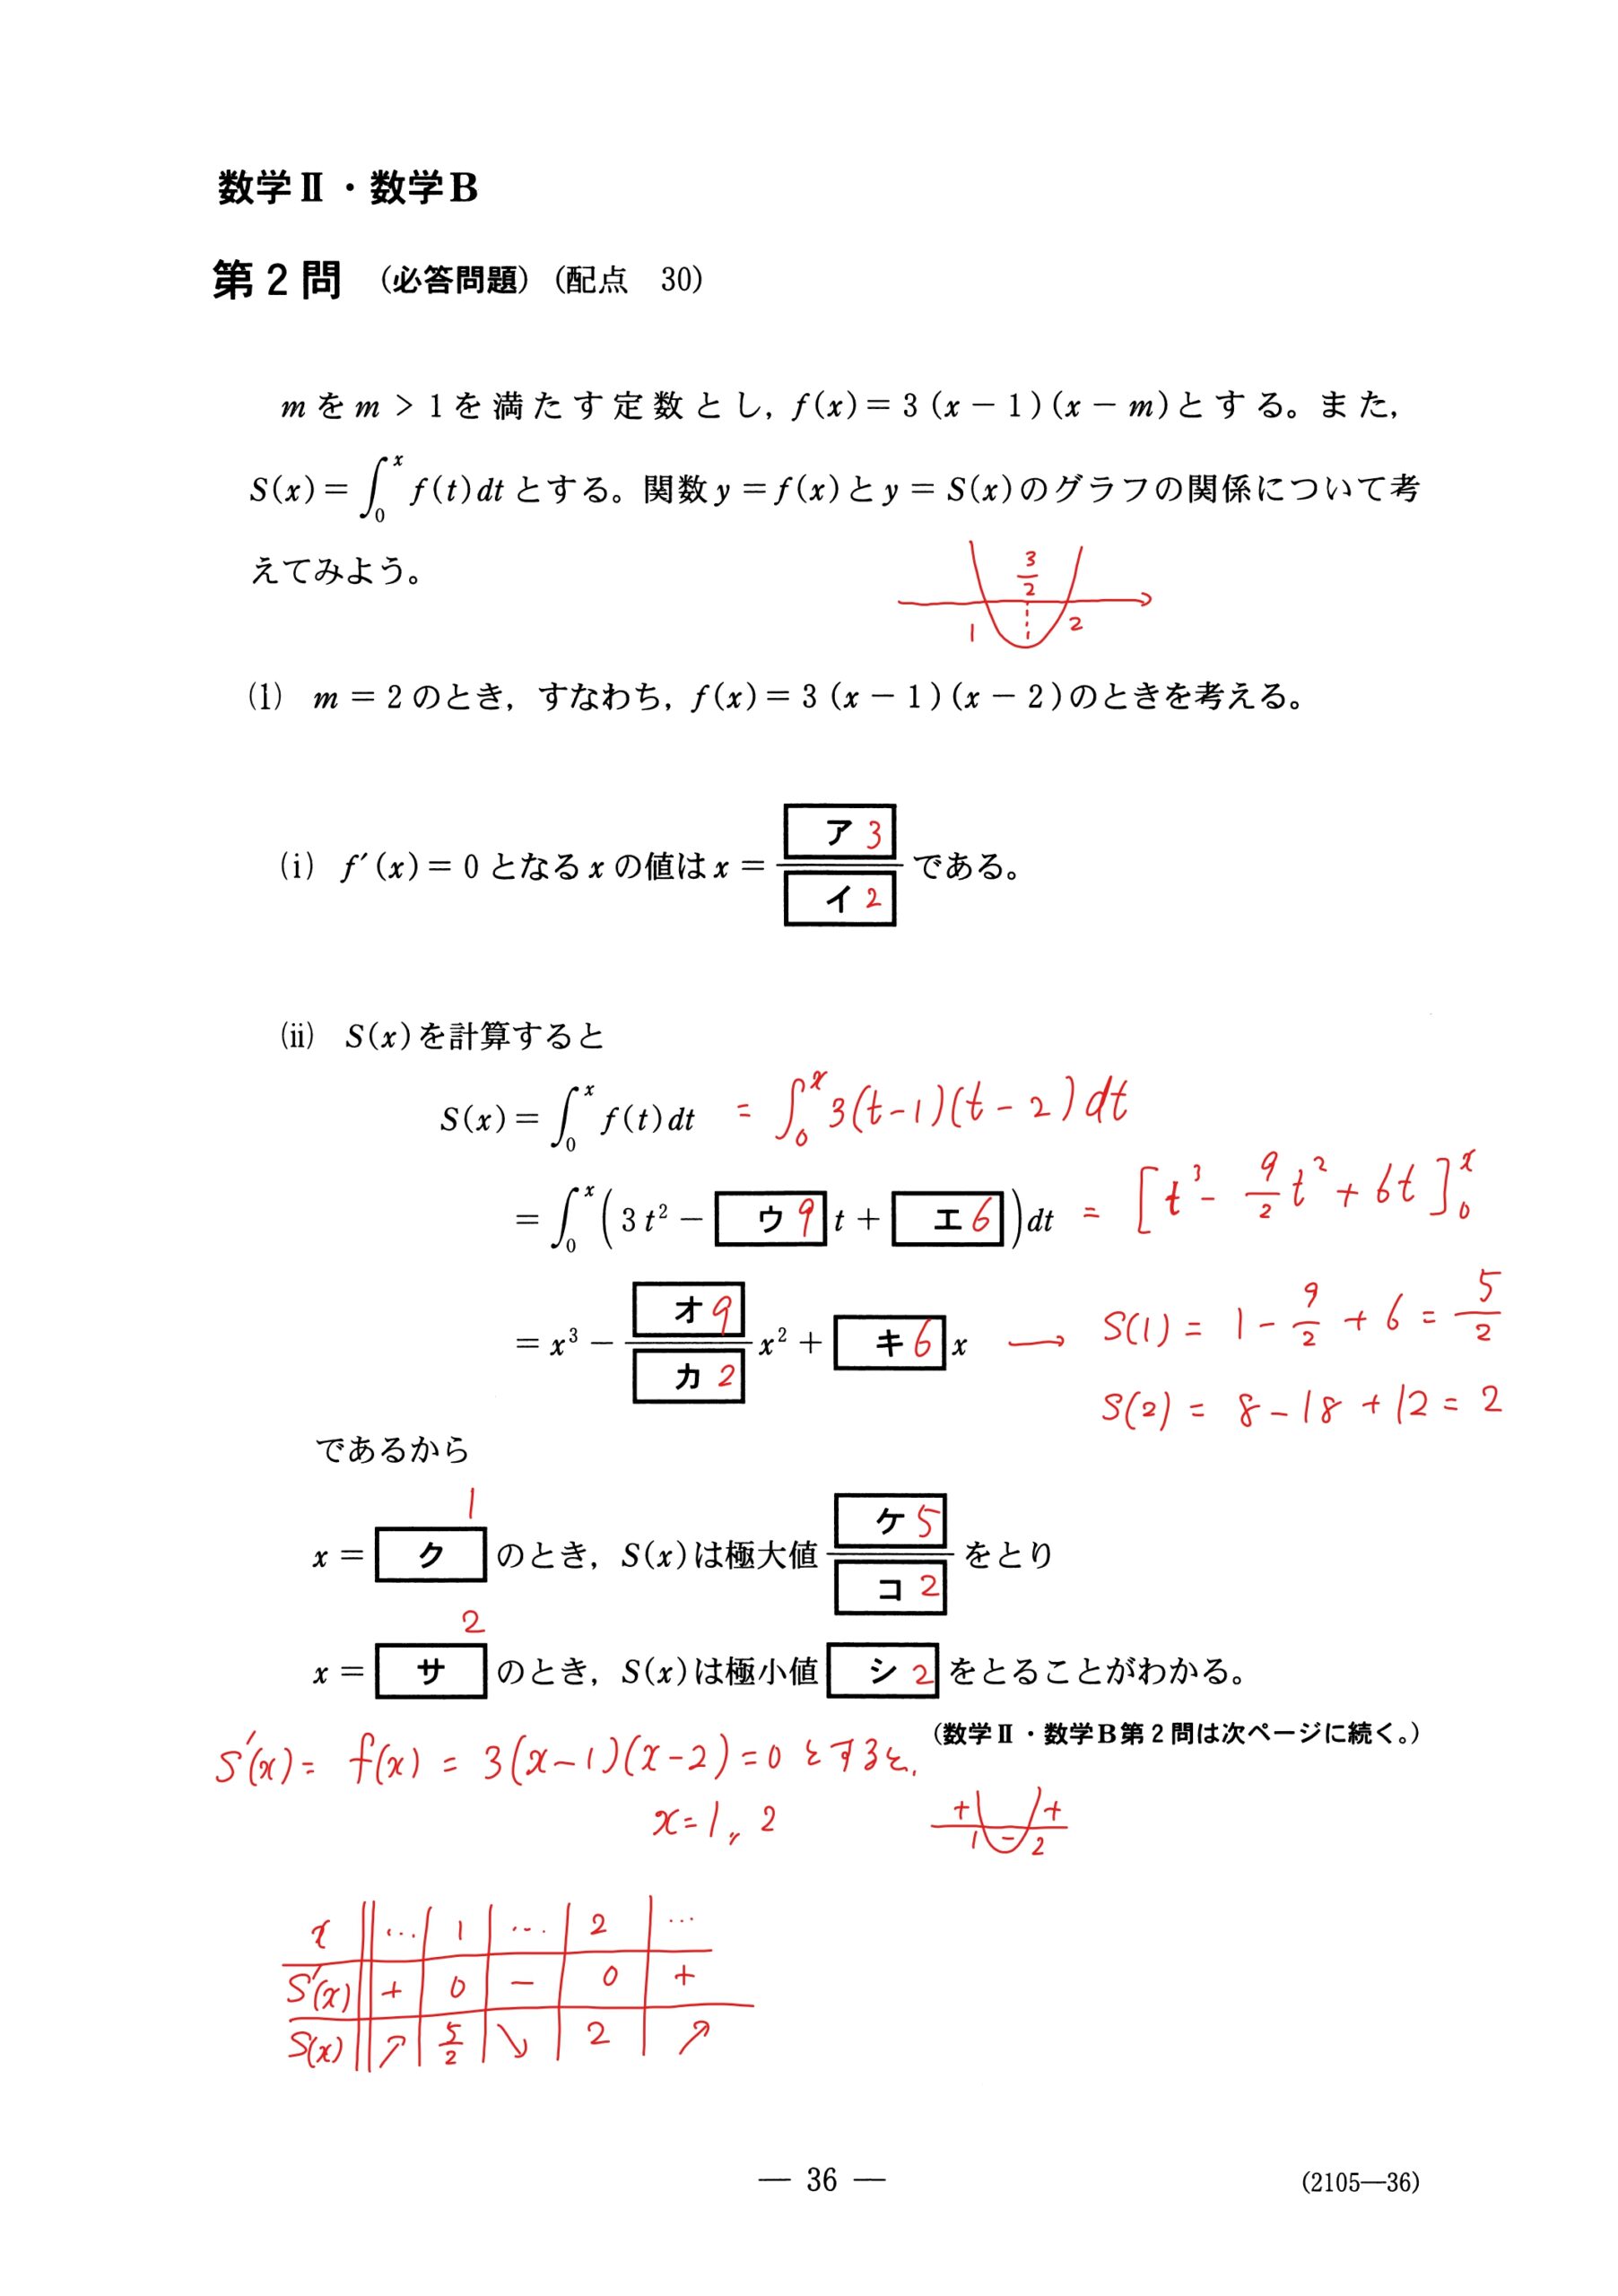 数学Ⅱ・数学B
第2問 (必答問題) (配点 30)
mをm > 1を満たす定数とし, f(x) = 3(x − 1)(x − m)とする。また,
S(x) = ∫₀ˣ f(t)dt とする。関数y = f(x)とy = S(x)のグラフの関係について考
えてみよう。
3/2
1 2
(1) m = 2のとき, すなわち, f(x) = 3(x − 1)(x − 2)のときを考える。
(i) f′(x) = 0となるxの値はx = ア 3/イ 2 である。
(ii) S(x)を計算すると
S(x) = ∫₀ˣ f(t)dt = ∫₀ˣ 3(t-1)(t-2)dt
= ∫₀ˣ (3t² − ウ 9 t + エ 6)dt = [t³ - 9/2 t² + 6t]₀ˣ
= x³ − オ 9/カ 2 x² + キ 6 x → S(1) = 1 - 9/2 + 6 = 5/2
S(2) = 8 - 18 + 12 = 2
であるから
1
x = ク のとき, S(x)は極大値 ケ 5/コ 2 をとり
2
x = サ のとき, S(x)は極小値 シ 2 をとることがわかる。
(数学Ⅱ・数学B第2問は次ページに続く。)
S′(x) = f(x) = 3(x-1)(x-2) = 0 とすると,
x = 1, 2
+ − +
1 2
x … 1 … 2 …
S′(x) + 0 − 0 +
S(x) ↗ 5/2 ↘ 2 ↗
— 36 —
(2105—36)